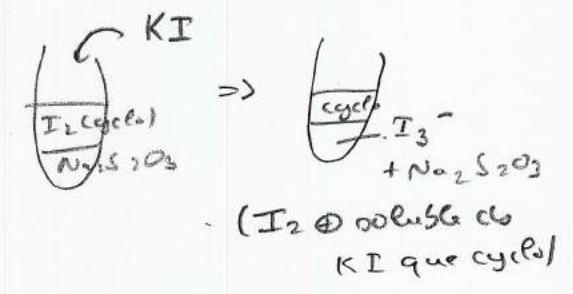 KI
I2 (cyclo)
Na2S2O3
=>
cyclo
I3-
+ Na2S2O3
(I2 ⊕ soluble ds
KI que cyclo)